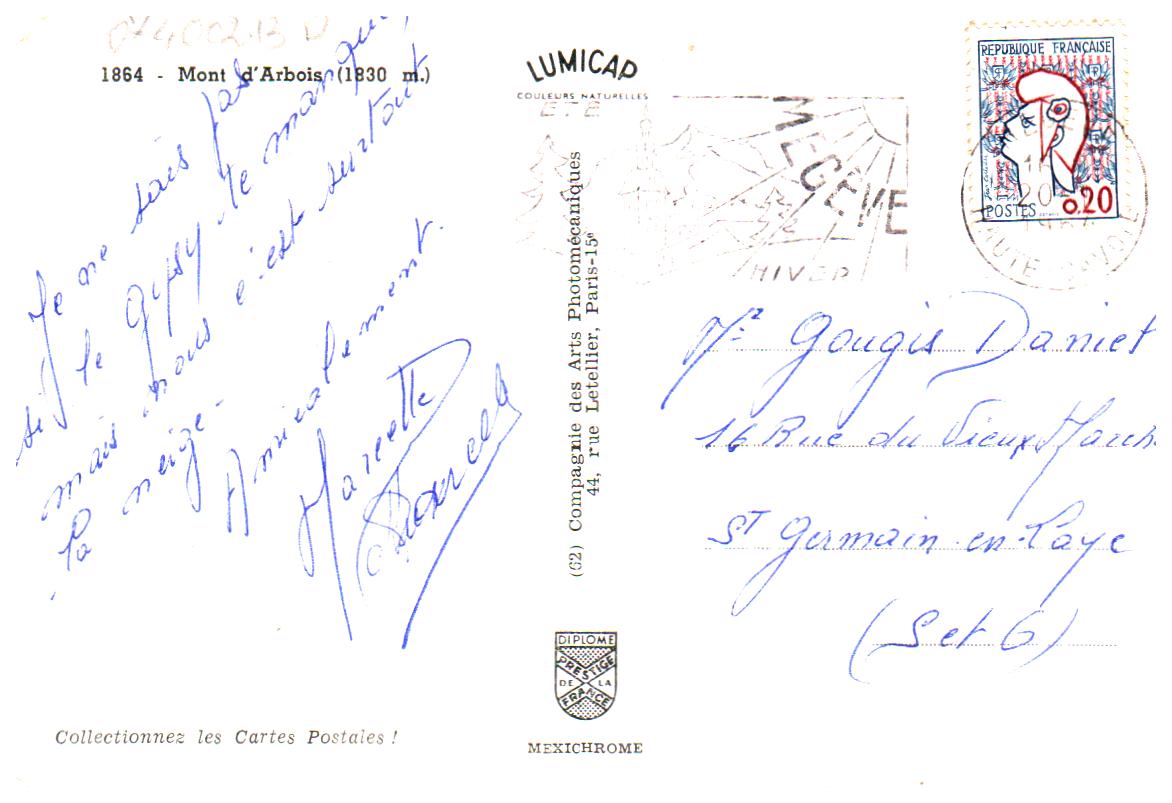 1864 - Mont d'Arbois (1830 m.)
Je ne sais pas
si le gipsy te manque,
mais nous c'est surtout
la neige.
Amicalement.
Marcette
LUMICAP
COULEURS NATURELLES
ETE
MEGÈVE
HIVER
REPUBLIQUE FRANÇAISE
POSTES
0,20
20
HAUTE-SAVOIE
(62) Compagnie des Arts Photomécaniques
44, rue Letellier, Paris-15e
Mr Gougis Daniel
16 Rue du Vieux March
ST Germain-en-Laye
(S et O)
DIPLOME
PRESTIGE
DE LA
FRANCE
MEXICHROME
Collectionnez les Cartes Postales !